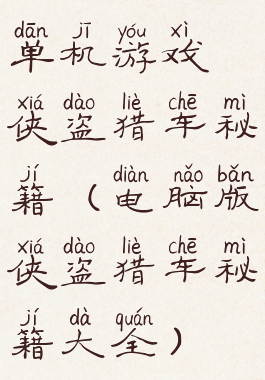 dān jī yóu xì
单机游戏
xiá dào liè chē mì
侠盗猎车秘
jí diàn nǎo bǎn
籍（电脑版
xiá dào liè chē mì
侠盗猎车秘
jí dà quán
籍大全）